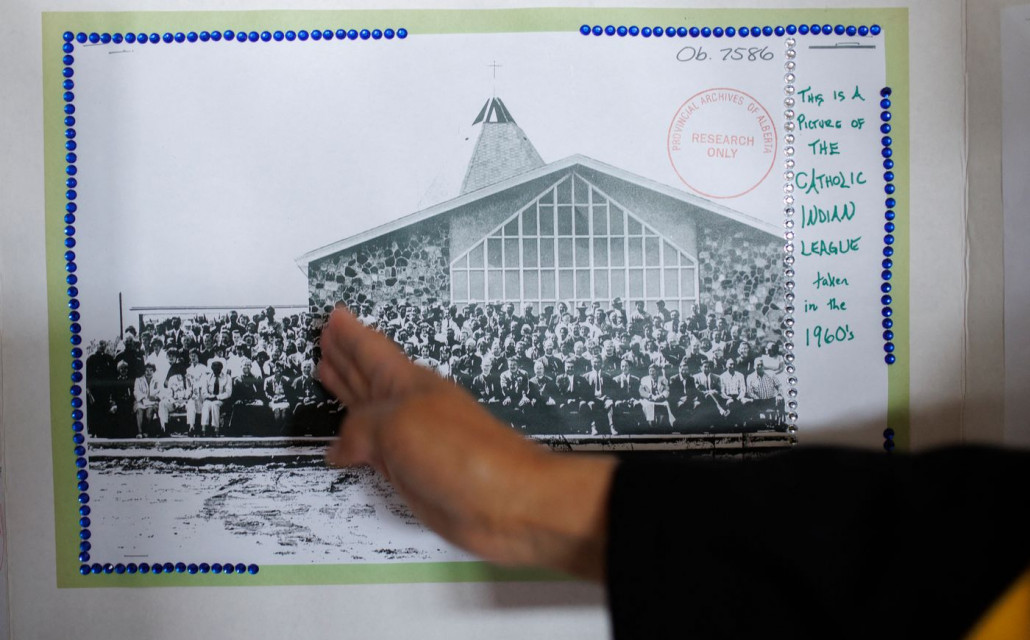 Ob. 7586
PROVINCIAL ARCHIVES OF ALBERTA
RESEARCH
ONLY
THIS IS A
PICTURE OF
THE
CATHOLIC
INDIAN
LEAGUE
taken
in the
1960's